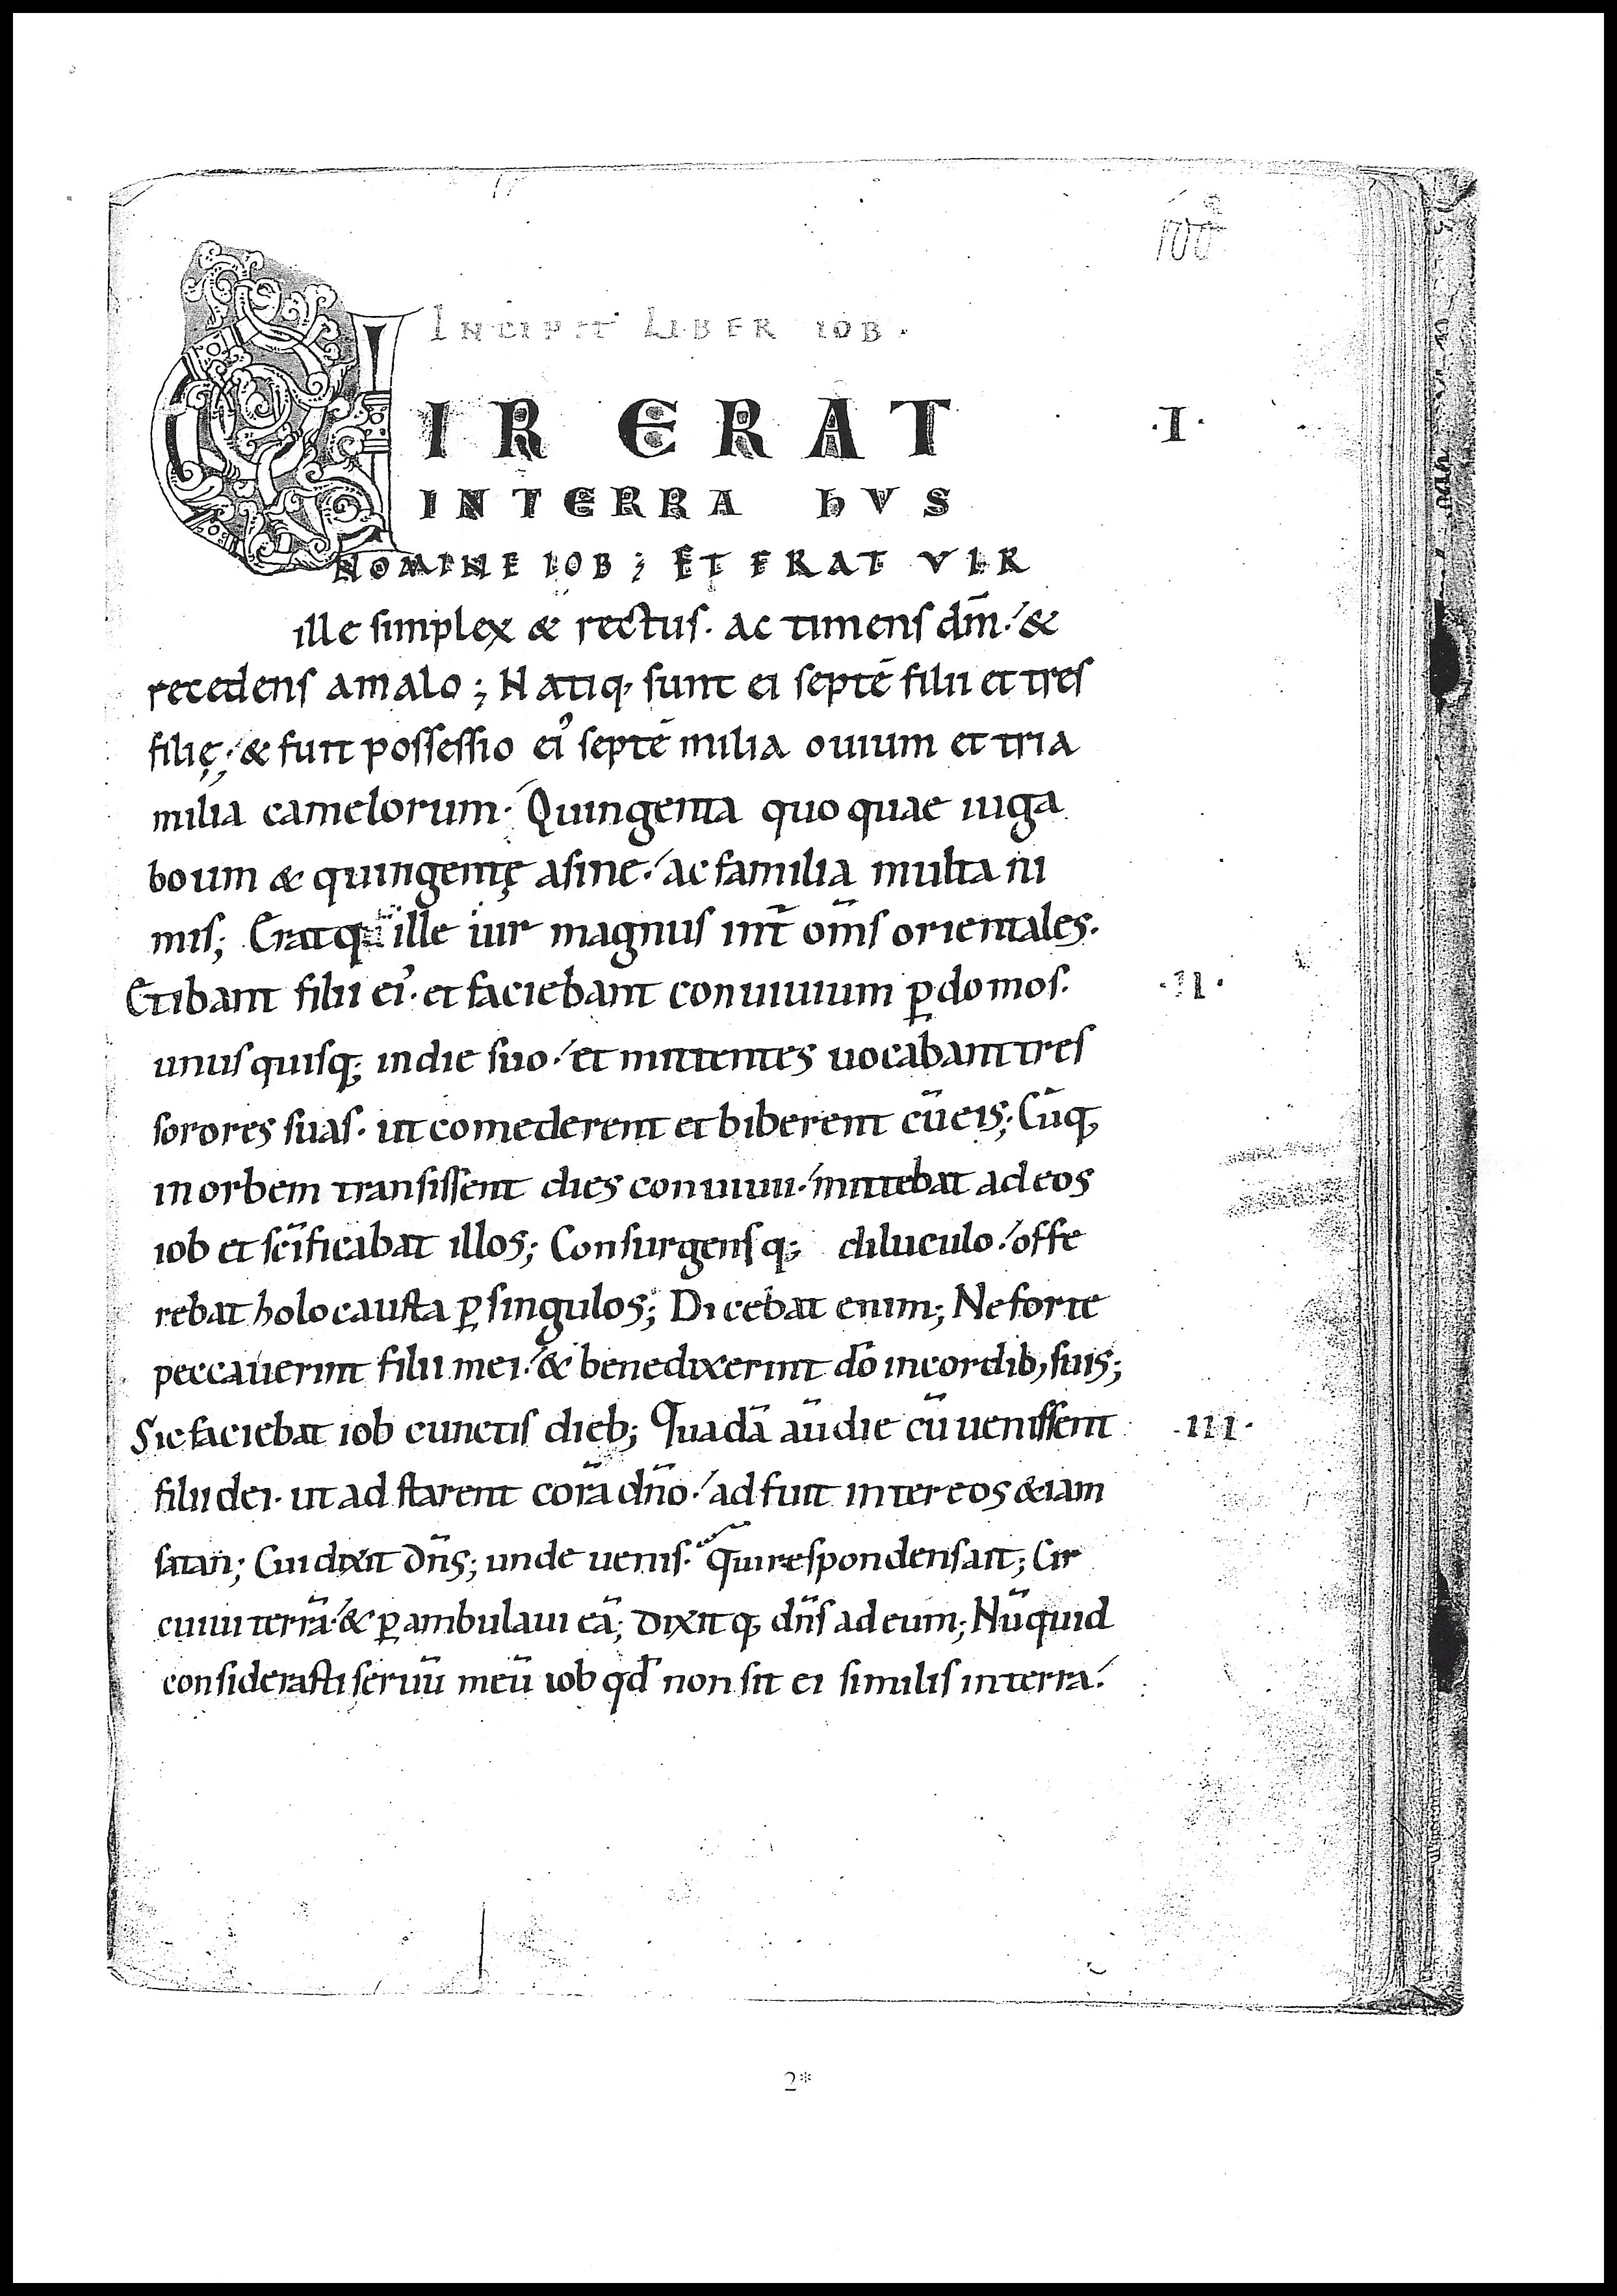 100
INCIPIT LIBER IOB.
VIR ERAT ·I·
IN TERRA hVS
NOMINE IOB; ET ERAT VIR
ille simplex & rectus· ac timens dm̄·/ &
recedens amalo; Natiq; sunt ei septē filii et tres
filię·/ & fuit possessio ei᾽ septē milia ouium et tria
milia camelorum·/ Quingenta quoquae iuga
boum & quingentę asine·/ ac familia multa ni
mis; Eratq; ille uir magnus int̄ om̄s orientales.
Etibant filii ei᾽· et faciebant conuiuium ꝑ domos. ·II·
unus quisq; indie suo·/ et mittentes uocabant tres
sorores suas· ut comederent et biberent cū eis; Cūq;
in orbem transissent dies conuiuii·/ mittebat ad eos
iob et sc̄ificabat illos; Consurgensq; diluculo·/ offe
rebat holocausta ꝑ singulos; Dicebat enim; Ne forte
peccauerint filii mei·/ & benedixerint dō incordib; suis;
Sic faciebat iob cunctis dieb; Quadā aū die cū uenissent ·III·
filii dei· ut ad starent corā dn̄o·/ ad fuit inter eos & iam
satan; Cui dixit dn̄s; unde uenis· Qui respondens ait; Cir
cuiui terrā·/ & ꝑambulaui eā; Dixitq; dn̄s ad eum; Nūquid
considerasti seruū meū iob qd̄ non sit ei similis interra·/
2*